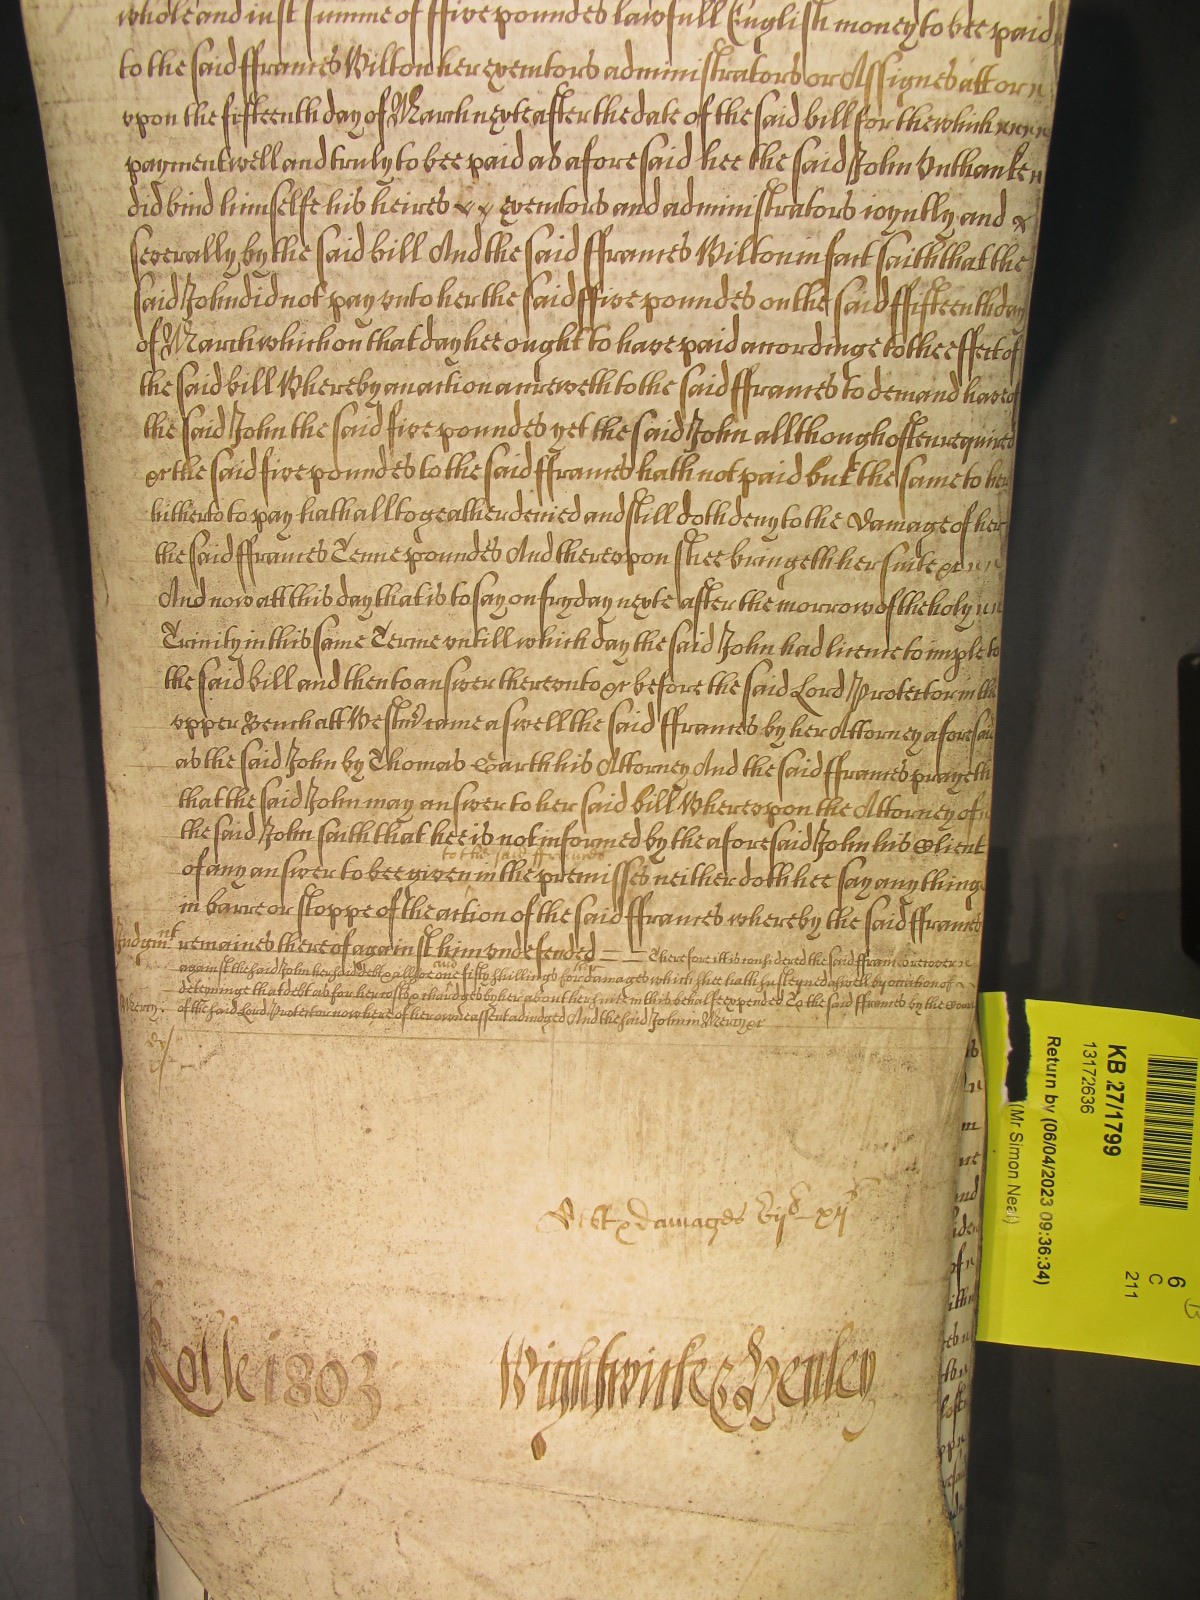 whole and iust summe of ffive poundes lawfull English money to bee paid
to the said ffrances Wilton her executors administrators or Assignes att or
vpon the fifteenth day of March nexte after the date of the said bill for the which
payment well and truly to bee paid as aforesaid hee the said John Vnthanke
did bind himselfe his heires x x executors and administrators ioyntly and x
severally by the said bill And the said ffrances Wilton in fact saith that the
said John did not pay vnto her the said ffive poundes on the said ffifteenth day
of March which on that day hee ought to have paid accordinge to the effect of
the said bill Whereby an action accreweth to the said ffrances to demand have of
the said John the said five poundes yet the said John allthough often required
&c the said five poundes to the said ffrances hath not paid but the same to her
hitherto to pay hath alltogeather denied and still doth deny to the Damage of her
the said ffrances Tenne poundes And therevpon shee bringeth her suite &c
And now att this day that is to say on fryday nexte after the morrow of the holy
Trinity in this same Terme vntill which day the said John had licence to imple to
the said bill and then to answer therevnto &c before the said Lord Protector in the
vpper Bench att Westm̄ came aswell the said ffrances by her Attorney aforesaid
as the said John by Thomas Garth his Attorney And the said ffrances prayeth
that the said John may answer to her said bill Wherevpon the Attorney of
the said John saith that hee is not informed by the aforesaid John his Client
to the said ffrances
of any answer to bee given in the premisses neither doth hee say any thing
in barre or stoppe of the action of the said ffrances whereby the said ffrances
Judgmt remaines thereof against him vndefended Therefore it is considered the said ffrances recover
against the said John her said debt & allsoe one and fifty shillings for her damages which shee hath susteyned aswell by occasion of
deteyninge that debt as for her costs & chardges by her about her suite in this behalfe expended To the said ffrances by the Court
Mercy. of the said Lord Protector now here of her owne assent adiudged And the said John in Mercy &c
Debt & damages vijli xjs
Rolle 1803 Wightwicke & Henley
KB 27/1799
13172636
Return by (06/04/2023 09:36:34)
(Mr Simon Neal)
6
C
211